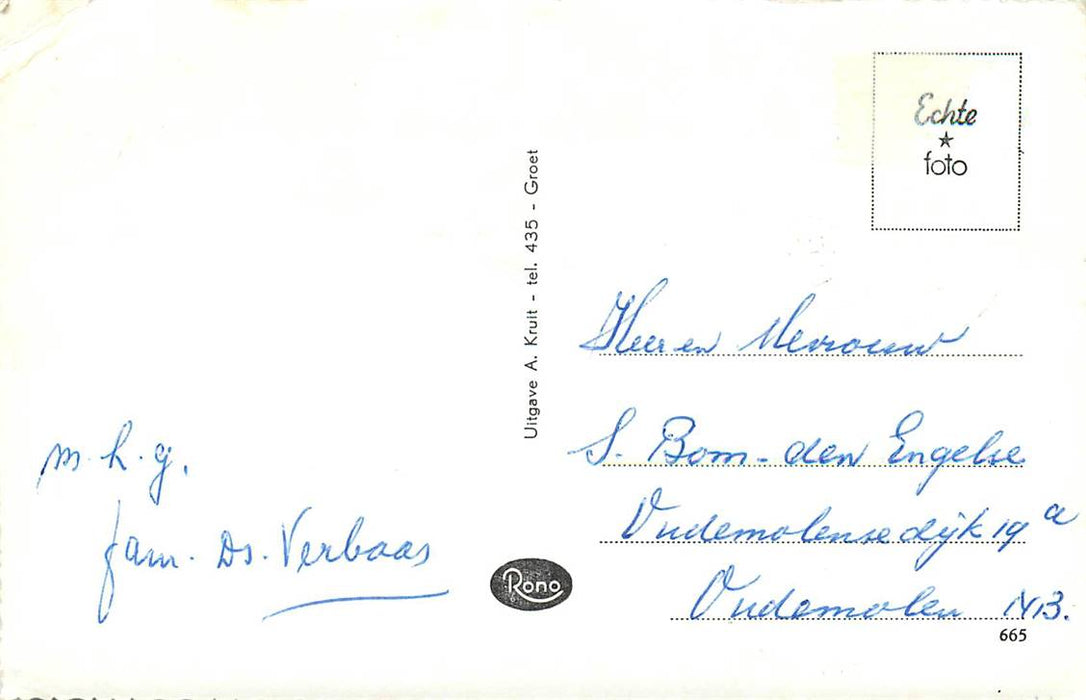 m.h.g.
fam. Ds. Verbaas
Uitgave A. Kruit - tel. 435 - Groet
Rono
Echte
foto
Heer en Mevrouw
S. Bom-den Engelse
Oudemolensedijk 19a
Oudemolen N.B.
665